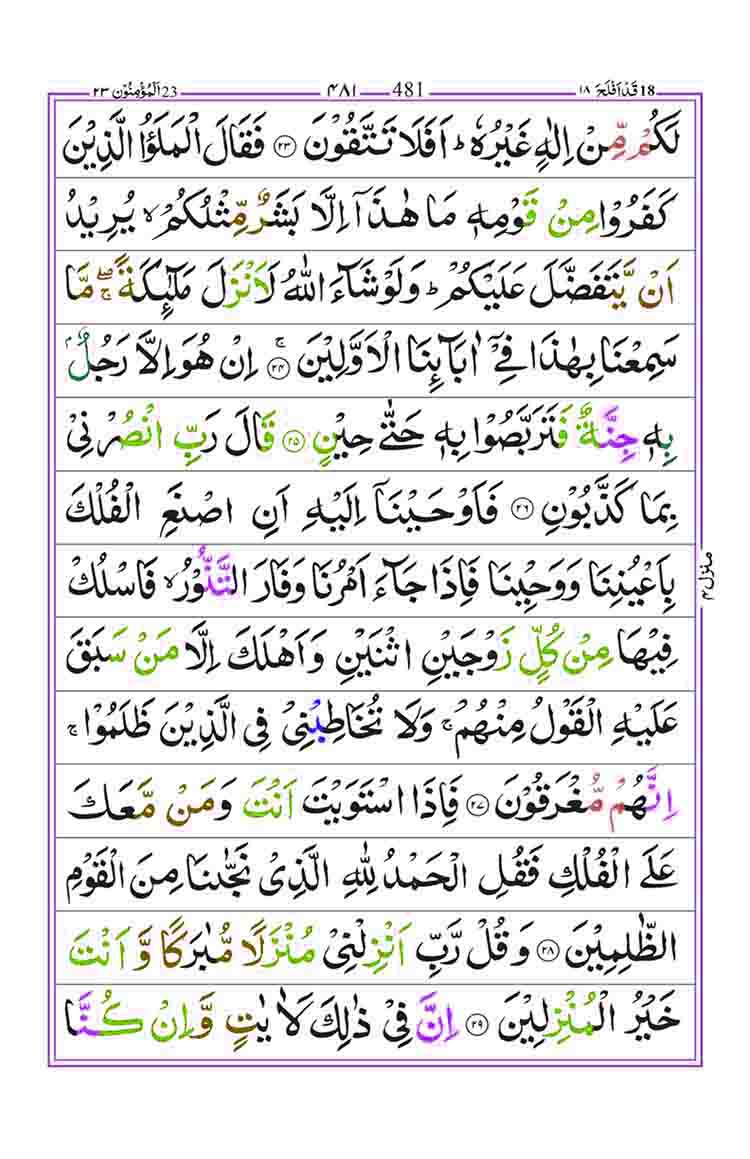 18 قَدْ اَفْلَحَ ١٨ 481 ٤٨١ 23 اَلْمُؤْمِنُوْن ٢٣
لَكُمْ مِّنْ اِلٰهٍ غَيْرُهٗ ؕ اَفَلَا تَتَّقُوْنَ ﴿۲۳﴾ فَقَالَ الْمَلَؤُا الَّذِيْنَ
كَفَرُوْا مِنْ قَوْمِهٖ مَا هٰذَاۤ اِلَّا بَشَرٌ مِّثْلُكُمْ ۙ يُرِيْدُ
اَنْ يَّتَفَضَّلَ عَلَيْكُمْ ؕ وَلَوْ شَآءَ اللّٰهُ لَاَنْزَلَ مَلٰٓئِكَةً ۖۚ مَّا
سَمِعْنَا بِهٰذَا فِيْۤ اٰبَآئِنَا الْاَوَّلِيْنَ ﴿ۚ۲۴﴾ اِنْ هُوَ اِلَّا رَجُلٌۢ
بِهٖ جِنَّةٌ فَتَرَبَّصُوْا بِهٖ حَتّٰى حِيْنٍ ﴿۲۵﴾ قَالَ رَبِّ انْصُرْنِيْ
بِمَا كَذَّبُوْنِ ﴿۲۶﴾ فَاَوْحَيْنَاۤ اِلَيْهِ اَنِ اصْنَعِ الْفُلْكَ
بِاَعْيُنِنَا وَوَحْيِنَا فَاِذَا جَآءَ اَمْرُنَا وَفَارَ التَّنُّوْرُ ۙ فَاسْلُكْ
فِيْهَا مِنْ كُلٍّ زَوْجَيْنِ اثْنَيْنِ وَاَهْلَكَ اِلَّا مَنْ سَبَقَ
عَلَيْهِ الْقَوْلُ مِنْهُمْ ۚ وَلَا تُخَاطِبْنِيْ فِي الَّذِيْنَ ظَلَمُوْا ۚ
اِنَّهُمْ مُّغْرَقُوْنَ ﴿۲۷﴾ فَاِذَا اسْتَوَيْتَ اَنْتَ وَمَنْ مَّعَكَ
عَلَى الْفُلْكِ فَقُلِ الْحَمْدُ لِلّٰهِ الَّذِيْ نَجّٰىنَا مِنَ الْقَوْمِ
الظّٰلِمِيْنَ ﴿۲۸﴾ وَقُلْ رَّبِّ اَنْزِلْنِيْ مُنْزَلًا مُّبٰرَكًا وَّاَنْتَ
خَيْرُ الْمُنْزِلِيْنَ ﴿۲۹﴾ اِنَّ فِيْ ذٰلِكَ لَاٰيٰتٍ وَّاِنْ كُنَّا
منزل ۴